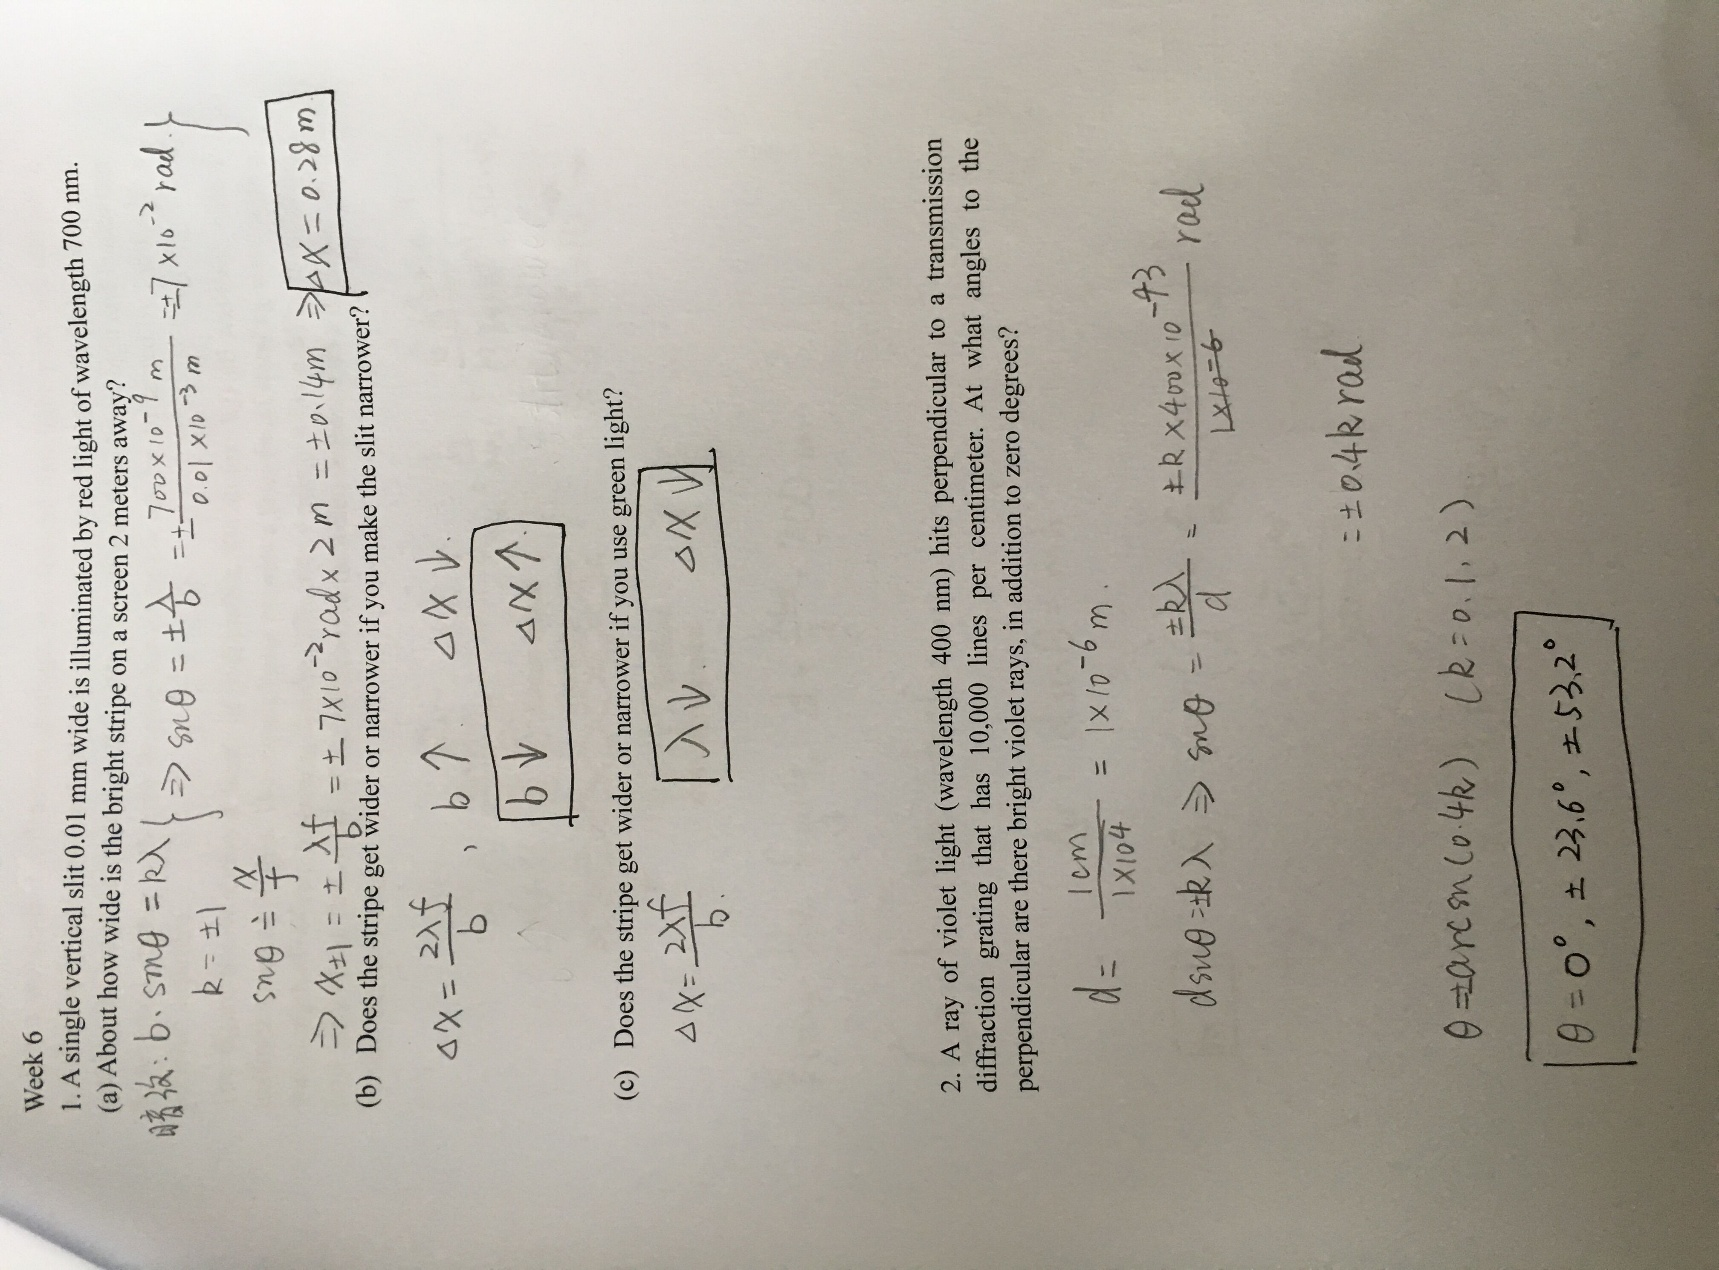 Week 6
1. A single vertical slit 0.01 mm wide is illuminated by red light of wavelength 700 nm.
(a) About how wide is the bright stripe on a screen 2 meters away?
暗纹: b·sinθ = kλ } ⇒ sinθ = ±λ/b = ± 700×10⁻⁹ m / 0.01×10⁻³ m = ±7×10⁻² rad. }
k = ±1
sinθ ≐ x/f
⇒ x±1 = ± λf/b = ± 7×10⁻² rad × 2m = ±0.14m ⇒ ΔX = 0.28m.
(b) Does the stripe get wider or narrower if you make the slit narrower?
ΔX = 2λf/b , b↑ ΔX↓.
b↓ ΔX↑.
(c) Does the stripe get wider or narrower if you use green light?
ΔX = 2λf/b. λ↓. ΔX↓
2. A ray of violet light (wavelength 400 nm) hits perpendicular to a transmission
diffraction grating that has 10,000 lines per centimeter. At what angles to the
perpendicular are there bright violet rays, in addition to zero degrees?
d = 1cm / 1×10⁴ = 1×10⁻⁶ m.
dsinθ = ±kλ ⇒ sinθ = ±kλ/d = ±k×400×10⁻⁹³ / 1×10⁻⁶ rad
= ±0.4k rad
θ = ±arcsin(0.4k) (k = 0.1.2)
θ = 0°, ± 23.6°, ± 53.2°